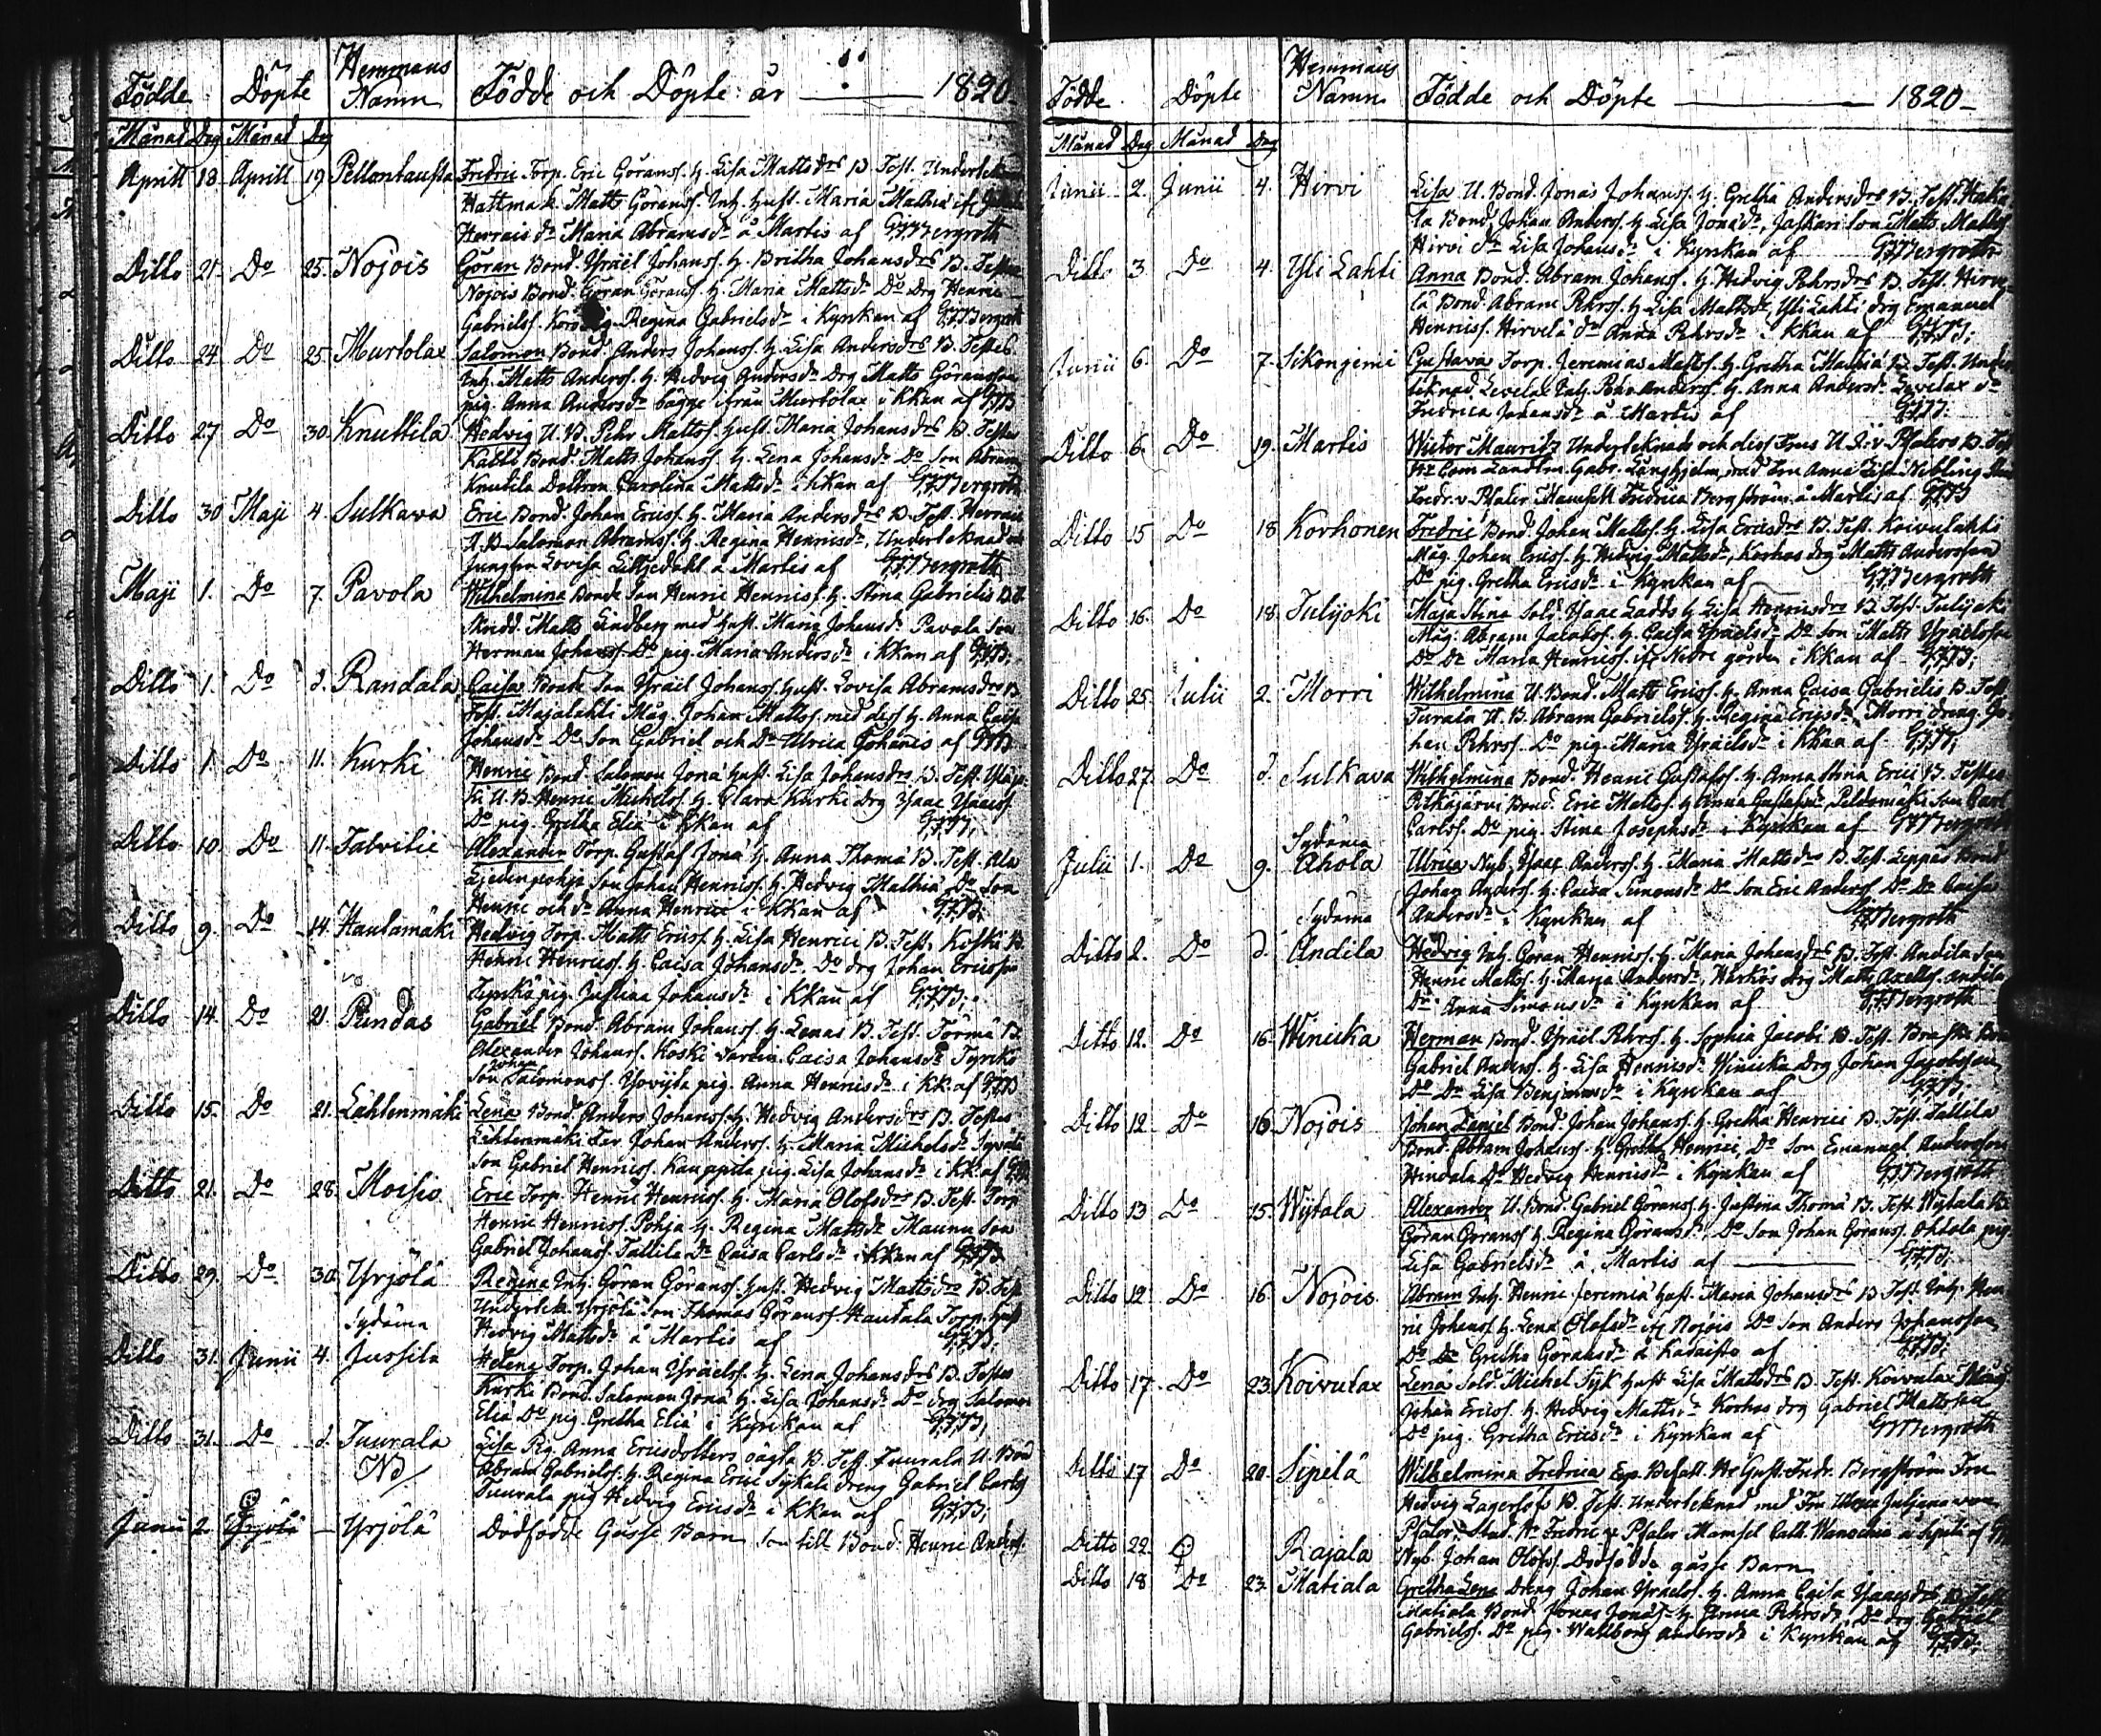 Födde Döpte Hemmans Namn Födde och Döpte år 1820
Månad Dag Månad Dag
Aprill 18 Aprill 19 Fredric Torp. Eric Görans. H. Lisa Mattsdr B. Test.
Matts Görans. Inh. Hust. Maria
Maria Abramsdr å Martis af GFBergroth
Ditto 21 Do 25 Nojois Göran Bond. Yrael Johans. H. Britha Johansdr B. Testes
Nojois Bond. Göran Görans. H. Maria Mattsdr Do Drg Henric
Gabriels. Regina Gabrielsdr i Kyrkan af GFBergroth
Ditto 24 Do 25 Murtolax Salomon Bond. Anders Johans. H. Lisa Andersdr B. Testes
Inh. Matts Anders. H. Hedvig Andersdr Drg Matts Göransson
pig. Anna Andersdr bägge ifrån Murtolax i KKan af GFB
Ditto 27 Do 30 Knuttila Hedvig U. B. Pehr Matts. Hust. Maria Johansdr B. Testes
Bond. Matts Johans. H. Lena Johansdr Do Son Abram
Knutila Dottren Carolina Mattsdr i kkan af GFBergroth
Ditto 30 Maji 4 Sulkava Eric Bond. Johan Erics. H. Maria Andersdr B. Test.
U. B. Salomon Abrams. H. Regina Henricsdr, Underteknad och
Jungfru Lovisa å Martis af GFBergroth
Maji 1. Do 7. Pavola Wilhelmina Bonde Son Henric Henrics. H. Stina Gabrielis B. T.
Skrädd. Matts Lindberg med hust. Maria Johansdr Pavola Son
Herman Johans. Do pig. Maria Andersdr i KKan af GFB
Ditto 1. Do d. Randala Caisa Bonde Son Yrael Johans. hust. Lovisa Abramsdr B.
Test. Majalahti Måg Johan Matts. med dess h. Anna Caisa
Johansdr Do Son Gabriel och Dr Ulrica Johanis af GFB
Ditto 1 Do 11. Kurki Henric Bond. Salomon Jona hust. Lisa Johansdr B. Test.
U. B. Henric Michels. H. Clara Kurki Drg Isaac Isaacs.
Do pig. Gretha Elia i kkan af GFB
Ditto 10 Do 11. Talvitie Alexander Torp. Gustaf Jona H. Anna Thoma B. Test. Ala
Son Johan Henrics. H. Hedvig Mathia Do Son
Henric och dr Anna Henrici i KKan af GFB
Ditto 9. Do 14. Hautamäki Hedvig Torp. Matts Erics. H. Lisa Henrici B. Test. Koski B.
Henric Henrics. H. Caisa Johansdr Do drg Johan Ericsson
pig. Justina Johansdr i KKan af GFB
Ditto 14. Do 21 Pundas Gabriel Bond. Abram Johans. H. Lenas B. Test. Törmä B.
Alexander Johans. Koski Caisa Johansdr
Son Johan Salomons. pig. Anna Henricsdr i KK. af GFB
Ditto 15. Do 21. Lähtenmäki Lena Bond. Anders Johans. H. Hedvig Andersdr B. Testes
Lähtenmäki Johan Anders. H. Maria Michelsdr
Son Gabriel Henrics. Kauppila pig. Lisa Johansdr i KK. af GFB
Ditto 21. Do 28. Moisio Eric Torp. Henric Henrics. H. Maria Olofsdr B. Test. Torp
Henric Henrics. Pohja H. Regina Mattsdr Maunu Son
Gabriel Johans. Tallila Dr Caisa Carlsdr i KKan af GFB
Ditto 29. Do 30. Yrjölä Regina Inh. Göran Görans. hust. Hedvig Mattsdr B. Test
Undertek. Yrjölä Son Thomas Görans. Hautala Torp. hust
Hedvig Mattsdr å Martis af GFB
Ditto 31. Junii 4. Sydänm Jussila Helena Torp. Johan Yraels. H. Lena Johansdr B. Testes
Kurki Bond. Salomon Jona H. Lisa Johansdr Do drg Salomon
Elia Do pig. Gretha Elia i Kyrkan af GFB
Ditto 31. Do d. Tuurala Lisa Pig. Anna Ericsdotters oägta B. Test. Tuurala U. Bond
NB Abram Gabriels. H. Regina Erici Sykala dreng Gabriel Carls.
Tuurala pig Hedvig Ericsdr i KKan af GFB
Junii 2. Yrjölä Yrjölä Dödfödde Gosse Barn son till Bond. Henric Anders.
Födde Döpte Hemmans Namn Födde och Döpte 1820
Månad Dag Månad Dag
Junii 2. Junii 4. Hirvi Lisa U. Bond. Jonas Johans. H. Gretha Andersdr B. Test. Haka
la Bond. Johan Anders. H. Lisa Jonadr, Son Matts Matts.
Hirvi Dr Lisa Johansdr i Kyrkan af GFBergroth
Ditto 3. Do 4. Yli Lahti Anna Bond. Abram Johans. H. Hedvig Pehrsdr B. Test. Hirve
lä Bond. Abram Pehrs. H. Lisa Mattsdr, Yli Lahti drg Emanuel
Henrics. Hirvelä dr Anna Pehrsdr i KKan af GFB
Junii 6. Do 7. Gustava Torp. Jeremias Matts. H. Gretha Mathia B. Test. Under
teknad Levelax Inh. Anders. H. Anna Andersdr Levelax dr
Fredrica Johansdr å Martis af GFB
Ditto 6. Do 19. Martis Victor Mauritz Underteknads och dess Frus U. v. Pfalers B. Test
Hr Com. Landtm. Gabr. Långhjelm, Fru Anna Lisa
Fredr. v. Pfaler Mamsell Fredrica Bergström å Martis af GFB
Ditto 15 Do 18 Korhonen Fredric Bond. Johan Matts. H. Lisa Ericsdr B. Test. Koivulahti
Måg. Johan Erics. H. Hedvig Mattsdr, Korhos drg Matts Andersson
Do pig. Gretha Ericsdr i Kyrkan af GFBergroth
Ditto 16. Do 18. Tulijoki Maja Stina Sold. Isaac Ladds H. Lisa Henricsdr B. Test. Tulijoki
Måg. Abram Jacobs. H. Caisa Yraelsdr Do Son Matts Yraelsson
Do Dr Maria Henrics. ifr. Nedre gården i KKan af GFB
Ditto 25. Julii 2. Morri Wilhelmina U. Bond. Matts Erics. H. Anna Caisa Gabrielis B. Test.
Turala U. B. Abram Gabriels. H. Regina Ericsdr, Morri dreng. Jo-
han Pehrs. Do pig. Maria Yraelsdr i KKan af GFB
Ditto 27. Do d. Sulkava Wilhelmina Bond. Henric Gustafs. H. Anna Stina Erici B. Testes
Pitkäjärvi Bond. Eric Matts. H. Anna Gustafsdr Peldomäki Son Carl
Carls. Do pig. Stina Josephsdr i Kyrkan af GFBergroth
Julii 1. Do 9. Sydänm Ahola Ulrica Nyb. Isaac Anders. H. Maria Mattsdr B. Test. Leppäs Bond.
Johan Anders. H. Caisa Simonsdr Do Son Eric Anders. Do Dr Caisa
Andersdr i Kyrkan af GFBergroth
Ditto 2. Do d. Sydänm Andila Hedvig Inh. Göran Henrics. H. Maria Johansdr B. Test. Andila Son
Henric Matts. H. Maria Andersdr, drg Matts Axells. Andila
Dr Anna Simonsdr i Kyrkan af GFBergroth
Ditto 12. Do 16. Winicka Herman Bond. Yrael Pehrs. H. Sophia Jacobi B. Test. Braska Bond.
Gabriel Anders. H. Lisa Henricsdr Winicka drg Johan Jacobsson
Do Dr Lisa Benjaminsdr i Kyrkan af GFB
Ditto 12 Do 16 Nojois Johan Daniel Bond. Johan Johans. H. Gretha Henrici B. Test. Tallila
Bond. Abram Johans. H. Gretha Henrici, Do Son Emanuel Andersson
Hindala Dr Hedvig Henricsdr i Kyrkan af GFBergroth
Ditto 13 Do 15. Wijtala Alexander U. Bond. Gabriel Görans. H. Justina Thoma B. Test. Wijtala B.
Göran Görans. H. Regina Göransdr, Do Son Johan Görans. Ohtola pig
Lisa Gabrielsdr å Martis af GFB
Ditto 12. Do 16. Nojois Abram Inh. Henric Jeremia hust. Maria Johansdr B Test. Inh. Hen
ric Johans. H. Lena Olofsdr ifr. Nojois Do Son Anders Johansson
Do Dr Gretha Göransdr å Kadaisto af GFB
Ditto 17. Do 23. Koivulax Lena Sold. Michel Syk hust Lisa Mattsdr B. Test. Koivulax Måg
Johan Erics. H. Hedvig Mattsdr Korhos drg Gabriel Mattsson
Do pig. Gretha Ericsdr i Kyrkan af GFBergroth
Ditto 17 Do 20. Sipilä Wilhelmina Fredrica Exp. Befall. Hr Gust. Fredr. Bergström Fru
Hedvig Lagerlöfs B. Test. Underteknad med Fru Ulrica Juliana von
Pfaler, Stud. Hr Fredric v. Pfaler Mamsel Cath. å Sipilä af GFB
Ditto 22. Rajala Nyb. Johan Olofs. Dödfödde gosse Barn
Ditto 18 Do 23. Matiala Gretha Lena Dreng Johan Yraels. H. Anna Caisa Isaacsdr B. Test
Matiala Bond. Jonas Jonas. H. Anna Pehrsdr, Do drg Gabriel
Gabriels. Do pig. Wallborg Andersdr i Kyrkan af GFB